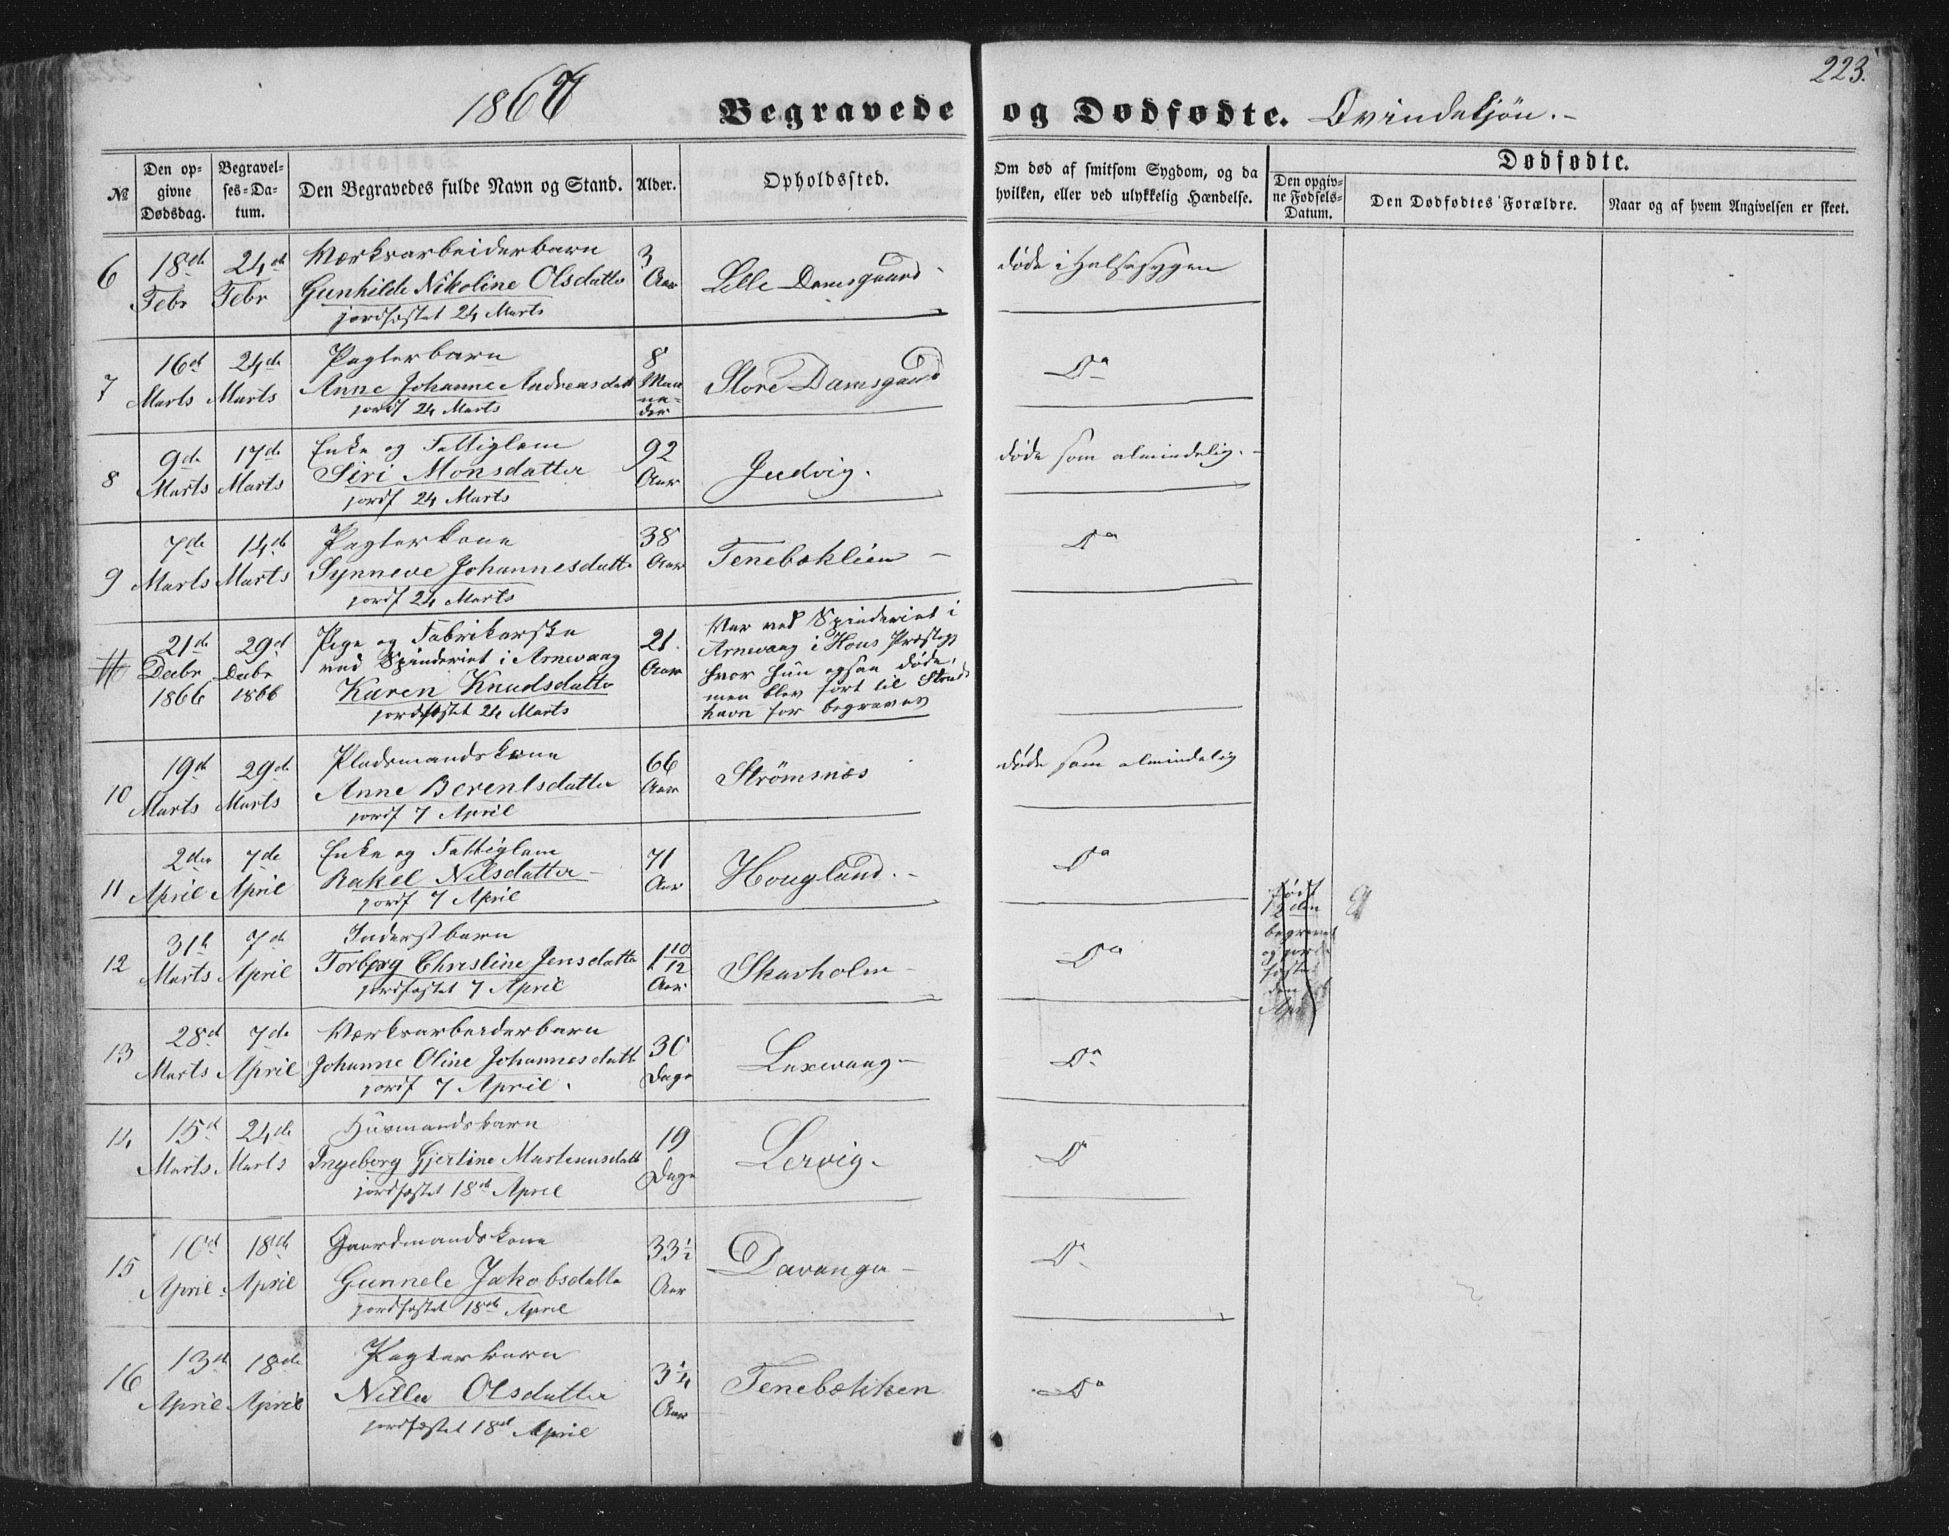 223.
1867
Begravede og Dødfødte. Qvindekjøn.
№
Den opgivne Dødsdag.
Begravelses-Datum.
Den Begravedes fulde Navn og Stand.
Alder.
Opholdssted.
Om død af smitsom Sygdom, og da hvilken, eller ved ulykkelig Hændelse.
Dødfødte.
Den opgivne Fødsels-Datum.
Den Dødfødtes Forældre.
Naar og af hvem Angivelsen er skeet.
6 18de Febr 24de Febr
Værksarbeiderbarn
Gunhilde Nikoline Olsdatter
jordfæstet 24 Marts
3 Aar
Lille Damsgaard
døde i Halssygen
7 16de Marts 24de Marts
Pagterbarn
Anne Johanne Andreasdatt
jordf 24 Marts
8 Maaneder
Store Damsgaard
Do
8 9de Marts 17de Marts
Enke og Fattiglem
Siri Monsdatter
jordf 24 Marts
92 Aar
Judvig.
døde som almindelig.
9 7de Marts 14de Marts
Pagterkone
Synneve Johannesdatter
jordf 24 Marts
38 Aar
Tenebeklien
Do
21de Decbr 1866 29de Decbr 1866
Pige og Fabrikarske
ved Spinderiet i Arnevaag
Karen Knudsdatter
jordfæstet 24 Marts
21 Aar
Var ved Spinderiet i
Arnevaag i Hous Præstegj
hvor hun ogsaa døde,
men blev ført til
havn for begraves
10 19de Marts 29de Marts
Pladsmandskone
Anne Berentsdatter
jordf 7 April
66 Aar
Strömsnæs
døde som almindelig
11 2den April 7de April
Enke og Fattiglem
Rakel Nilsdatter
jordf 7 April
71 Aar
Houglund.
Do
12 31te Marts 7de April
Inderstbarn
Torborg Christine Jensdatter
jordfæstet 7 April
1 10/12 Aar
Skarholm
Do
født
den
begravet
og jord
fæstet
den
Apr
13 28de Marts 7de April
Værksarbeiderbarn
Johanne Oline Johannesdatt
jordf 7 April.
30 Dage
Laxevaag
Do
14 15de Marts 24de Marts
Huusmandsbarn
Ingeborg Gjertine Martinusdatt
jordfæstet 18de April
19 Dage
Lervig
Do
15 10de April 18de April
Gaardmandskone
Gunnele Jakobsdatter
jordfæstet 18de April
33½ Aar
Davanger
Do
16 13de April 18de April
Pagterbarn
Nille Olsdatter
jordfæstet 18de April
3¼ Aar
Tenebækken
Do